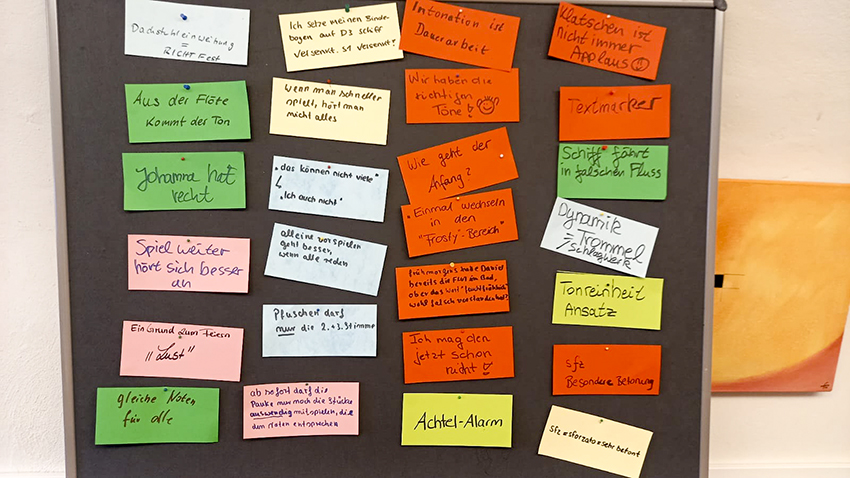 Dachstuhleinweihung
=
RICHTFest
Aus der Flöte
kommt der Ton
Johanna hat
recht
Spiel weiter
hört sich besser
an
Ein Grund zum Feiern
"Lust"
gleiche Noten
für alle
Ich setze meinen Binde-
bogen auf D3 Schiff
versenkt. S1 versenkt?
wenn man schneller
spielt, hört man
nicht alles
"das können nicht viele"
"Ich auch nicht"
alleine vorspielen
geht besser,
wenn alle reden
Pfuschen darf
nur die 2.+3. Stimme
ab sofort darf die
Pauke nur noch die Stücke
auswendig mitspielen, die
den Noten entsprechen
Intonation ist
Dauerarbeit
Wir haben die
richtigen
Töne!
Wie geht der
Anfang?
"Einmal wechseln
in den
"Frosty"-Bereich"
frühmorgens habe David
bereits die Flöt im Bad,
aber das Wort
wohl falsch verstanden hat?
Ich mag den
jetzt schon
nicht!
Achtel-Alarm
Klatschen ist
nicht immer
Applaus
Textmarker
Schiff fährt
in falschen Fluss
Dynamik
= Trommel
Schlagwerk
Tonreinheit
Ansatz
sfz
Besondere Betonung
sfz = sforzato = sehr betont